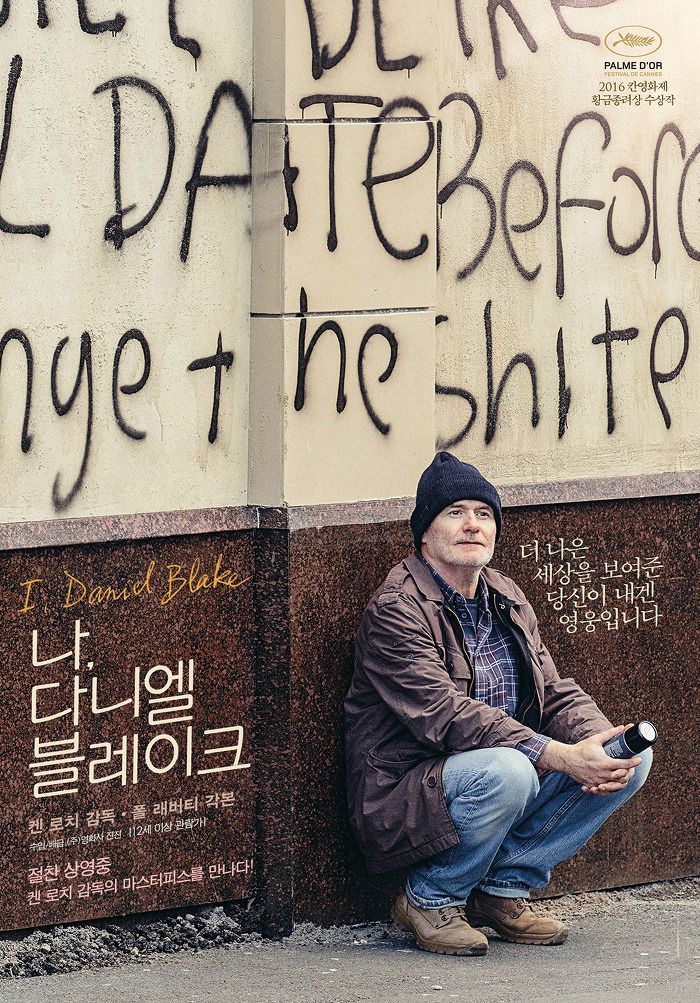 DATE Before
nge the shite
PALME D'OR
FESTIVAL DE CANNES
2016 칸영화제
황금종려상 수상작
더 나은
세상을 보여준
당신이 내겐
영웅입니다
I, Daniel Blake
나,
다니엘
블레이크
켄 로치 감독 · 폴 래버티 각본
수입/배급 (주)영화사 진진 · 12세 이상 관람가
절찬 상영중
켄 로치 감독의 마스터피스를 만나다!